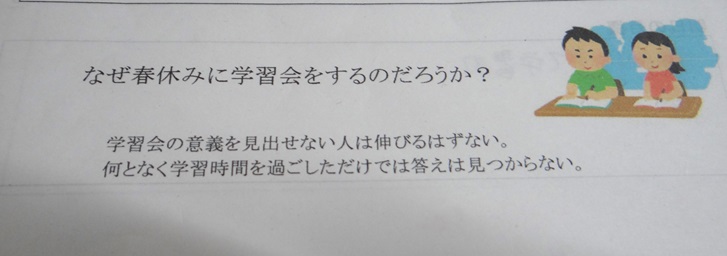 なぜ春休みに学習会をするのだろうか？
学習会の意義を見出せない人は伸びるはずない。
何となく学習時間を過ごしただけでは答えは見つからない。